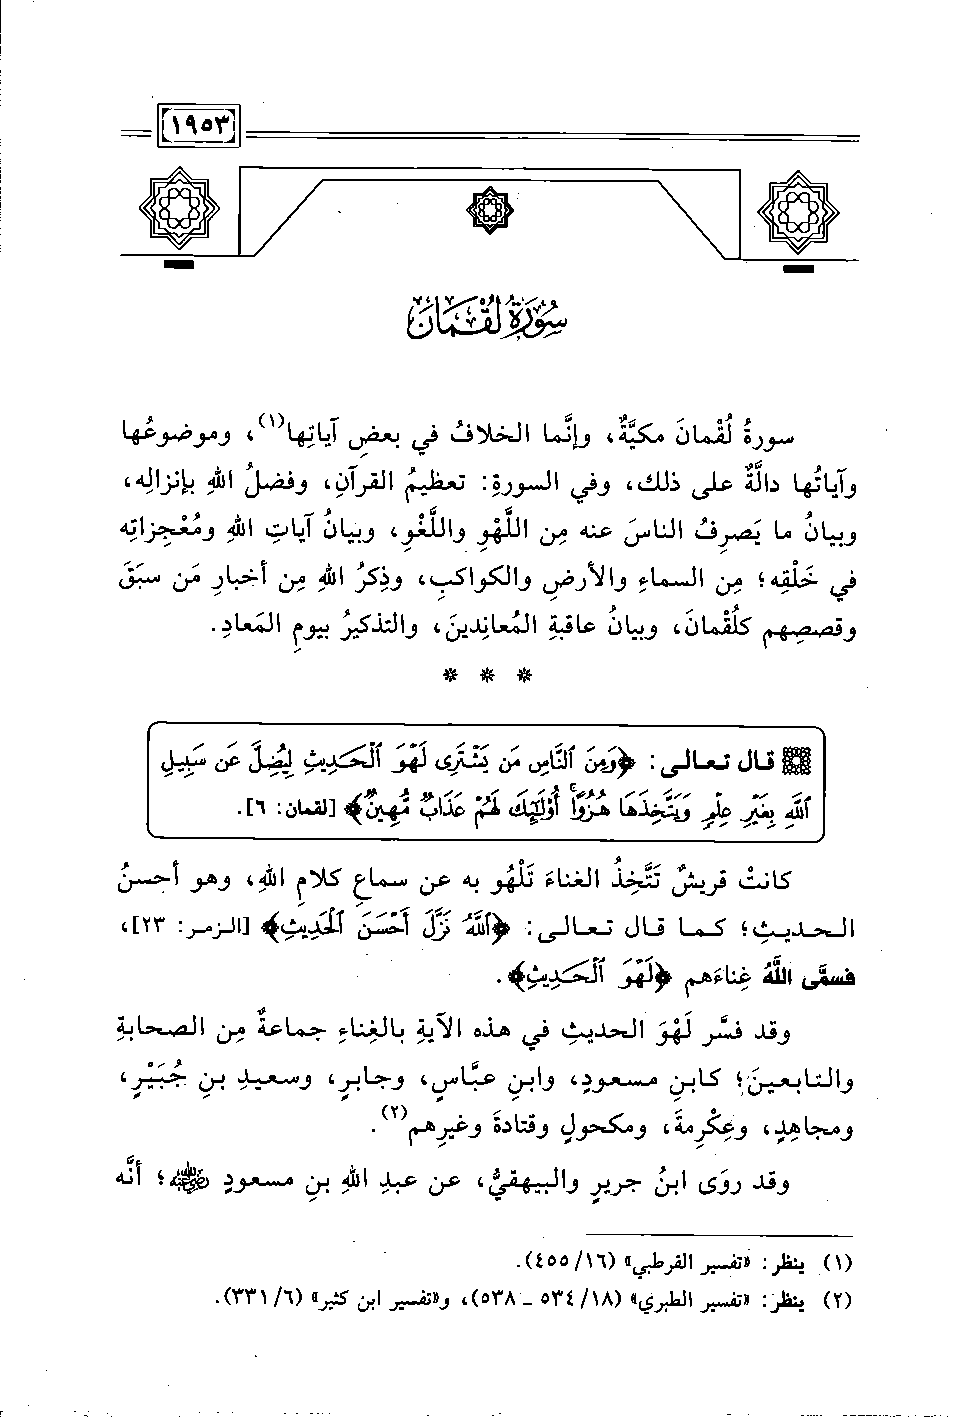 ١٩٥٣
سُورَةُ لُقْمَانَ
سورةُ لُقْمانَ مكيَّةٌ، وإنَّما الخلافُ في بعضِ آياتِها(١)، وموضوعُها
وآياتُها دالَّةٌ على ذلك، وفي السورةِ: تعظيمُ القرآنِ، وفضلُ اللهِ بإنزالِه،
وبيانُ ما يَصرِفُ الناسَ عنه مِن اللَّهْوِ واللَّغْوِ، وبيانُ آياتِ اللهِ ومُعْجِزاتِه
في خَلْقِه؛ مِن السماءِ والأرضِ والكواكبِ، وذِكرُ اللهِ مِن أخبارِ مَن سبَقَ
وقصصِهم كلُقْمانَ، وبيانُ عاقبةِ المُعانِدِينَ، والتذكيرُ بيومِ المَعادِ.
* * *
قال تعالى: ﴿وَمِنَ ٱلنَّاسِ مَن يَشْتَرِى لَهْوَ ٱلْحَدِيثِ لِيُضِلَّ عَن سَبِيلِ
ٱللَّهِ بِغَيْرِ عِلْمٍ وَيَتَّخِذَهَا هُزُوًا ۚ أُو۟لَٰٓئِكَ لَهُمْ عَذَابٌ مُّهِينٌ﴾ [لقمان: ٦].
كانتْ قريشٌ تَتَّخِذُ الغناءَ تَلْهُو به عن سماعِ كلامِ اللهِ، وهو أحسنُ
الحديثِ؛ كما قال تعالى: ﴿ٱللَّهُ نَزَّلَ أَحْسَنَ ٱلْحَدِيثِ﴾ [الزمر: ٢٣]،
فسمَّى اللَّهُ غِناءَهم ﴿لَهْوَ ٱلْحَدِيثِ﴾.
وقد فسَّر لَهْوَ الحديثِ في هذه الآيةِ بالغِناءِ جماعةٌ مِن الصحابةِ
والتابعينَ؛ كابنِ مسعودٍ، وابنِ عبَّاسٍ، وجابرٍ، وسعيدِ بنِ جُبَيْرٍ،
ومجاهِدٍ، وعِكْرِمةَ، ومكحولٍ وقتادةَ وغيرِهم(٢).
وقد روَى ابنُ جريرٍ والبيهقيُّ، عن عبدِ اللهِ بنِ مسعودٍ رضي الله عنه؛ أنَّه
(١) ينظر: «تفسير القرطبي» (١٦/ ٤٥٥).
(٢) ينظر: «تفسير الطبري» (١٨/ ٥٣٤ ـ ٥٣٨)، و«تفسير ابن كثير» (٦/ ٣٣١).